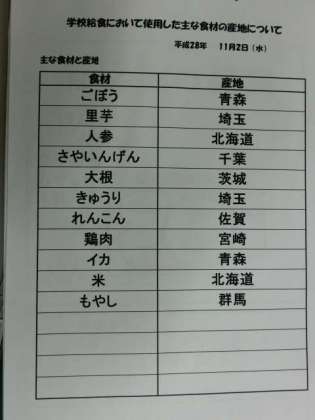 学校給食において使用した主な食材の産地について
平成28年 11月2日(水)
主な食材と産地
食材 産地
ごぼう 青森
里芋 埼玉
人参 北海道
さやいんげん 千葉
大根 茨城
きゅうり 埼玉
れんこん 佐賀
鶏肉 宮崎
イカ 青森
米 北海道
もやし 群馬